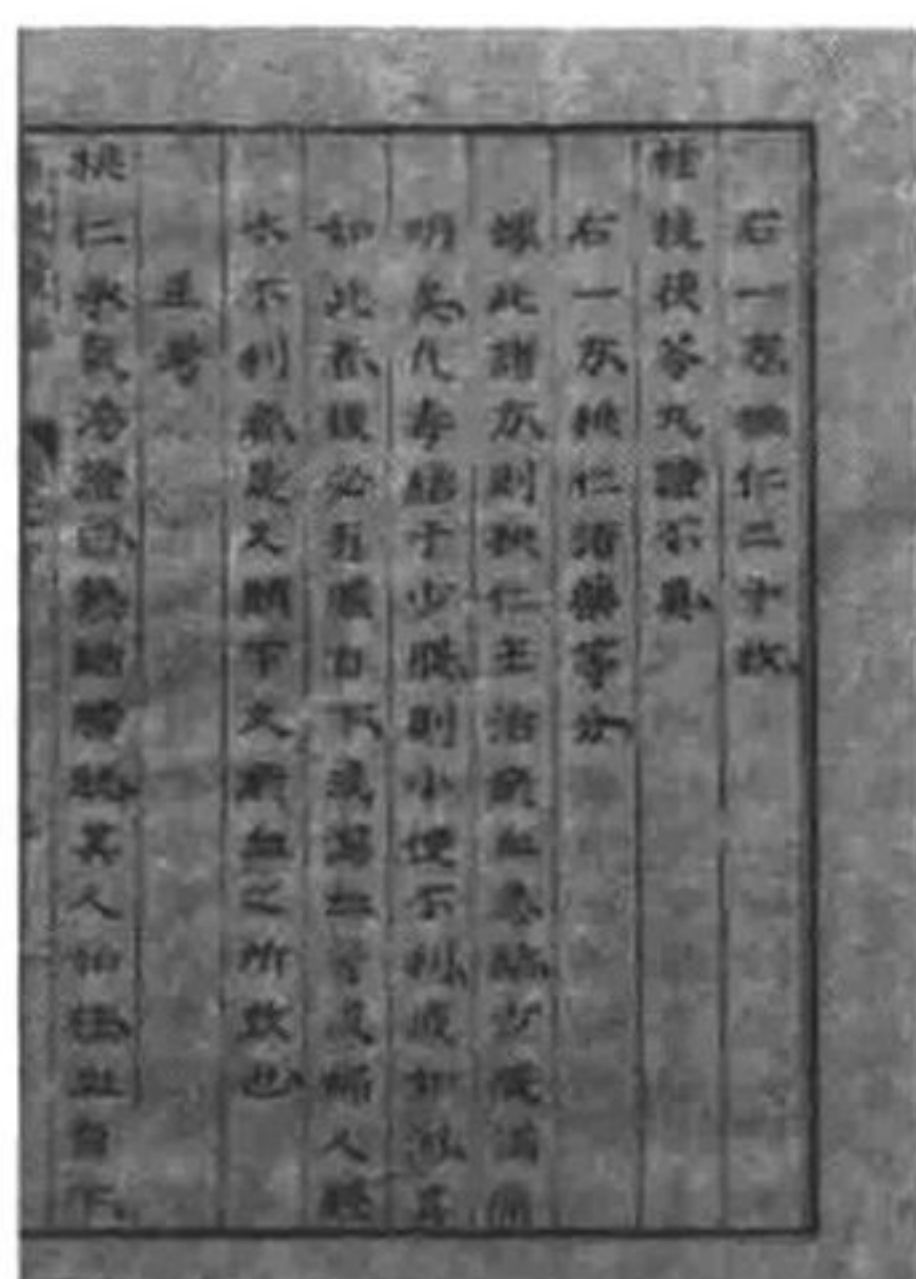 右一方桃仁二十枚
桂枝茯苓丸證不具
右一方桃仁諸藥等分
據此諸方則桃仁主治瘀血急結少腹滿痛
明矣凡毒結于少腹則小便不利或如淋其
如此者後必有膿自下或瀉血者或婦人經
水不利者是又臍下久瘀血之所致也
互考
桃仁承氣湯證曰熱結膀胱其人如狂血自下